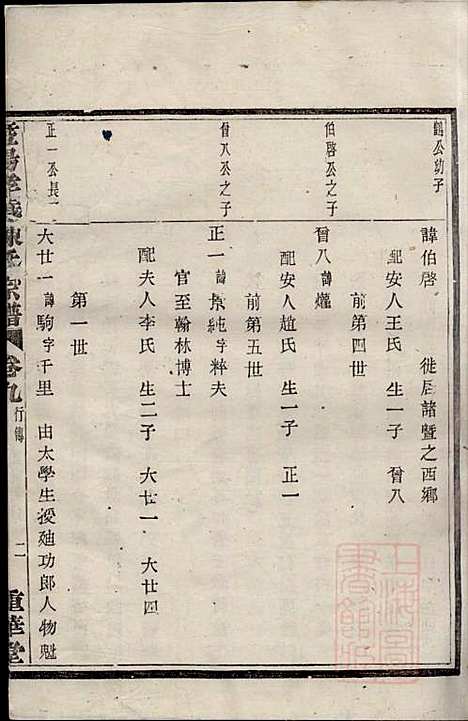 鶴公幼子
諱伯啓 徙居諸暨之西鄉
配安人王氏 生一子 曾八
前第四世
伯啓公之子
曾八諱爟
配安人趙氏 生一子 正一
前第五世
曾八公之子
正一諱 純字粹夫
官至翰林博士
配夫人李氏 生二子 大廿一 大廿四
第一世
正一公長
大廿一諱駒字千里 由太學生授廸功郎人物魁
暨陽 陳氏宗譜 卷九 行傳 二 重華堂
上海 書